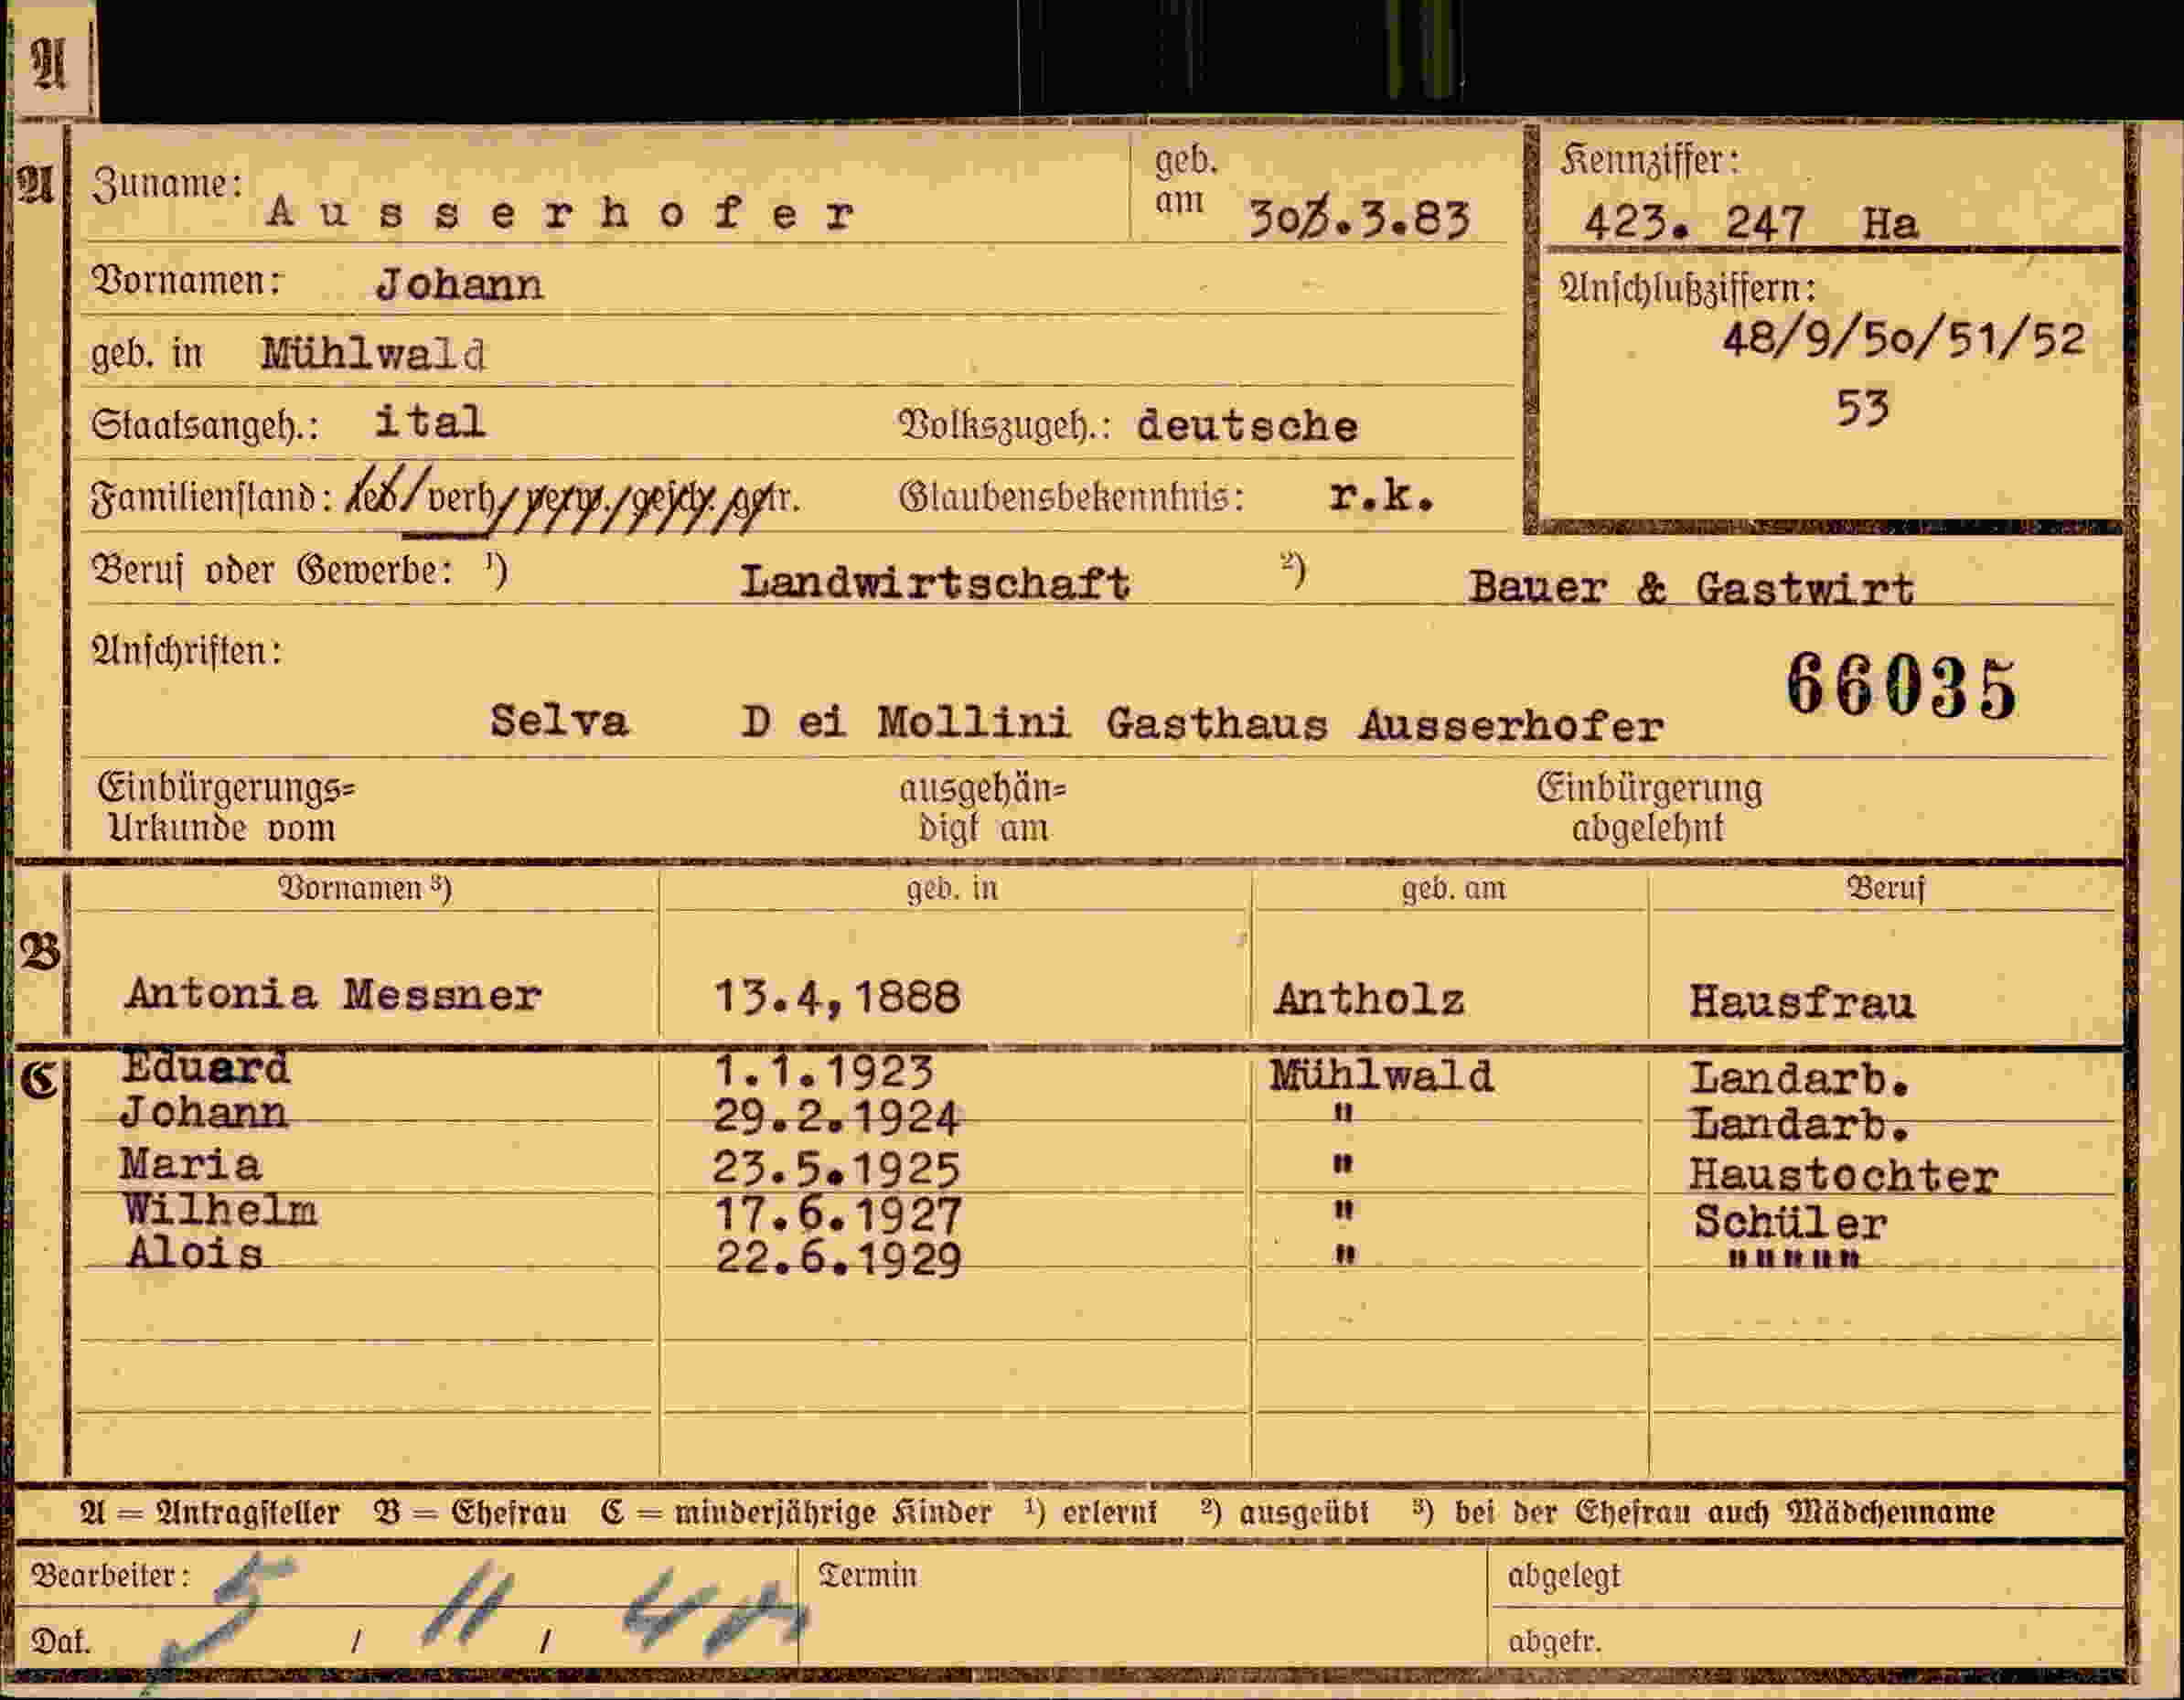 A
A
Zuname: Ausserhofer geb. am 30.3.83 Kennziffer: 423. 247 Ha
Vornamen: Johann Anschlußziffern:
48/9/50/51/52
geb. in Mühlwald
53
Staatsangeh.: ital Volkszugeh.: deutsche
Familienstand: led/verh/verw./gesch. getr. Glaubensbekenntnis: r.k.
Beruf oder Gewerbe: ¹) Landwirtschaft ²) Bauer & Gastwirt
Anschriften:
66035
Selva D ei Mollini Gasthaus Ausserhofer
Einbürgerungs= ausgehän= Einbürgerung
Urkunde vom digt am abgelehnt
Vornamen ³) geb. in geb. am Beruf
B
Antonia Messner 13.4,1888 Antholz Hausfrau
C
Eduard 1.1.1923 Mühlwald Landarb.
Johann 29.2.1924 " Landarb.
Maria 23.5.1925 " Haustochter
Wilhelm 17.6.1927 " Schüler
Alois 22.6.1929 " """""
A = Antragsteller B = Ehefrau C = minderjährige Kinder ¹) erlernt ²) ausgeübt ³) bei der Ehefrau auch Mädchenname
Bearbeiter: Termin abgelegt
5 11
Dat. / / abgetr.